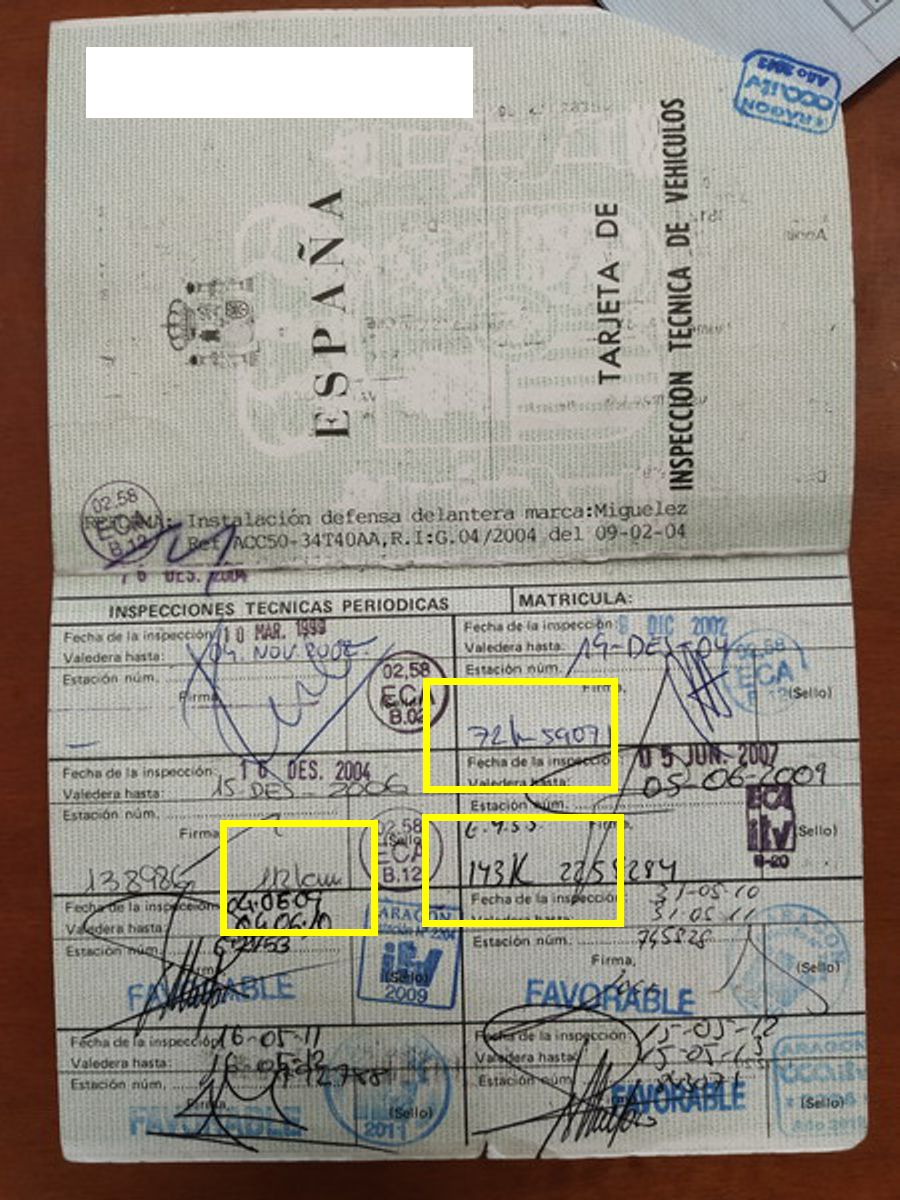 ESPAÑA
TARJETA DE
INSPECCION TECNICA DE VEHICULOS
ARAGON
Año 2013
02.58
ECA
B.12
REFORMA: Instalación defensa delantera marca:Miguelez
Ref ACC50-34T40AA,R.I:G.04/2004 del 09-02-04
16 DES. 2004
INSPECCIONES TECNICAS PERIODICAS
MATRICULA:
Fecha de la inspección 10 MAR. 1999
Valedera hasta: 04. NOV. 2002
Estación núm.
Firma,
02,58
ECA
B.02
Fecha de la inspección DIC 2002
Valedera hasta: 19-DES-04
Estación núm.
Firma,
(Sello)
02.58
ECA
72k 5907
Fecha de la inspección: 16 DES. 2004
Valedera hasta: 15 DES - 2006
Estación núm.
Firma,
138986 112km
02.58
ECA
B.12
Fecha de la inspección 05 JUN. 2007
Valedera hasta: 05-06-2009
Estación núm.
Firma,
(Sello)
ECA
itv
143K 2258284
Fecha de la inspección 04.06.09
Valedera hasta: 04.06.10
Estación núm.
Firma,
FAVORABLE
ARAGON
itv
(Sello)
2009
Fecha de la inspección 31-05-10
Valedera hasta: 31 05 11
Estación núm. 745828
Firma,
FAVORABLE
(Sello)
Fecha de la inspección 16-05-11
Valedera hasta: 16-05-12
Estación núm.
Firma,
FAVORABLE
(Sello)
2011
Fecha de la inspección: 15-05-12
Valedera hasta: 15-05-13
Estación núm.
FAVORABLE
ARAGON
(Sello)